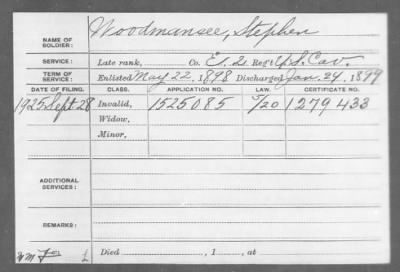 NAME OF SOLDIER: Woodmansee, Stephen
SERVICE: Late rank, Co. E, 2 Reg't U.S. Cav.
TERM OF SERVICE: Enlisted May 22, 1898 Discharged Jan. 24, 1899
DATE OF FILING. CLASS. APPLICATION NO. LAW. CERTIFICATE NO.
1925 Sept 28 Invalid, 1525085 5/20 1279433
Widow,
Minor,
ADDITIONAL SERVICES:
REMARKS:
Died , 1 , at